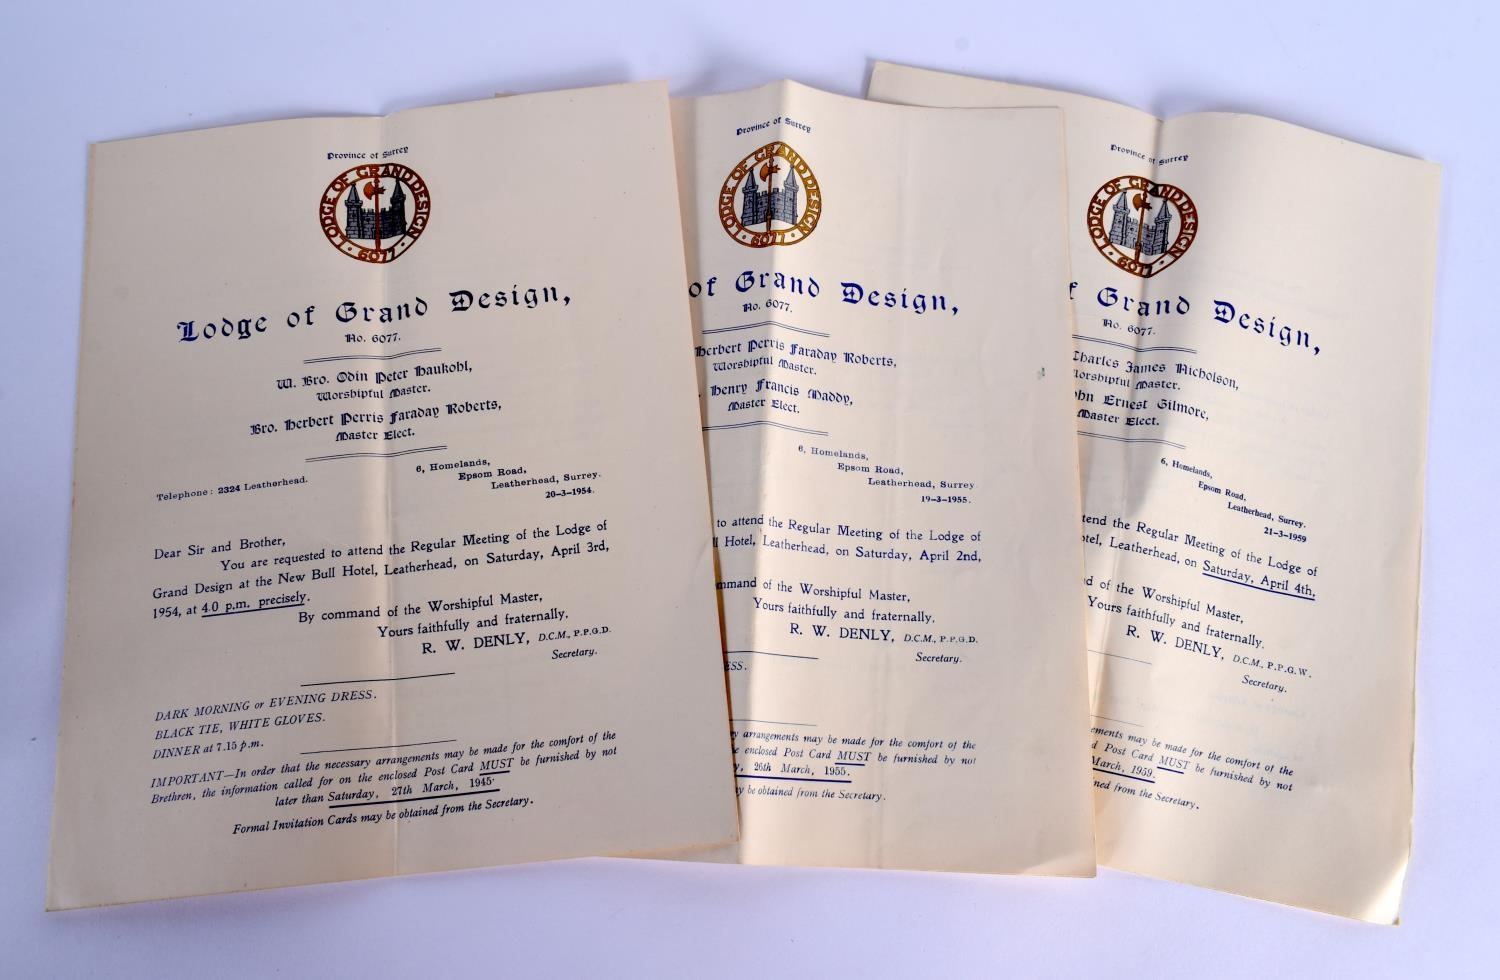 Province of Surrey
LODGE OF GRAND DESIGN
· 6077 ·
Lodge of Grand Design,
No. 6077.
W. Bro. Odin Peter Haukohl,
Worshipful Master.
Bro. Herbert Perris Faraday Roberts,
Master Elect.
Telephone: 2324 Leatherhead.
6, Homelands,
Epsom Road,
Leatherhead, Surrey.
20-3-1954.
Dear Sir and Brother,
You are requested to attend the Regular Meeting of the Lodge of
Grand Design at the New Bull Hotel, Leatherhead, on Saturday, April 3rd,
1954, at 4.0 p.m. precisely.
By command of the Worshipful Master,
Yours faithfully and fraternally,
R. W. DENLY, D.C.M., P.P.G.D.
Secretary.
DARK MORNING or EVENING DRESS.
BLACK TIE, WHITE GLOVES.
DINNER at 7.15 p.m.
IMPORTANT—In order that the necessary arrangements may be made for the comfort of the
Brethren, the information called for on the enclosed Post Card MUST be furnished by not
later than Saturday, 27th March, 1945.
Formal Invitation Cards may be obtained from the Secretary.
Province of Surrey
LODGE OF GRAND DESIGN
· 6077 ·
of Grand Design,
No. 6077.
Herbert Perris Faraday Roberts,
Worshipful Master.
. Henry Francis Maddy,
Master Elect.
6, Homelands,
Epsom Road,
Leatherhead, Surrey
19-3-1955.
to attend the Regular Meeting of the Lodge of
Hotel, Leatherhead, on Saturday, April 2nd,
mmand of the Worshipful Master,
Yours faithfully and fraternally,
R. W. DENLY, D.C.M., P.P.G.D.
Secretary.
ESS.
ry arrangements may be made for the comfort of the
e enclosed Post Card MUST be furnished by not
y, 26th March, 1955.
may be obtained from the Secretary.
Province of Surrey
LODGE OF GRAND DESIGN
· 6077 ·
f Grand Design,
No. 6077.
Charles James Nicholson,
Worshipful Master.
ohn Ernest Gilmore,
Master Elect.
6, Homelands,
Epsom Road,
Leatherhead, Surrey.
21-3-1959
ttend the Regular Meeting of the Lodge of
otel, Leatherhead, on Saturday, April 4th,
nd of the Worshipful Master,
Yours faithfully and fraternally,
R. W. DENLY, D.C.M., P.P.G.W.
Secretary.
ements may be made for the comfort of the
d Post Card MUST be furnished by not
March, 1959.
ned from the Secretary.